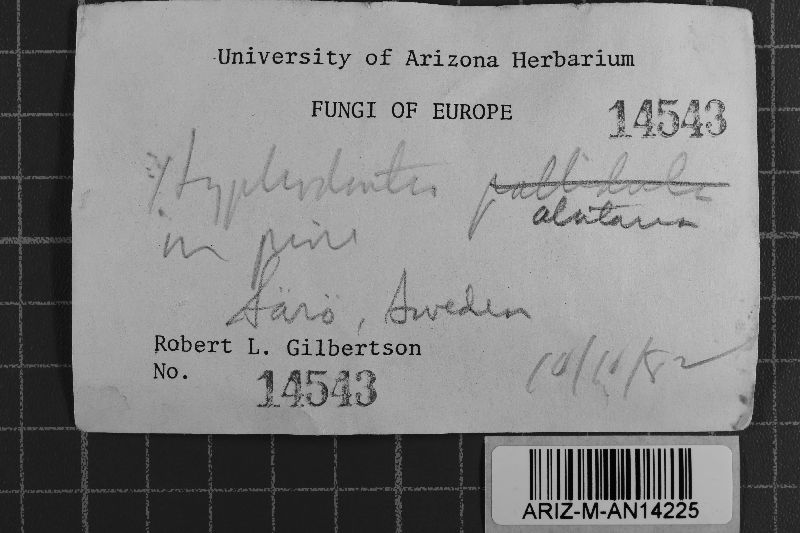 University of Arizona Herbarium
FUNGI OF EUROPE
14543
Hyphodontia pallidula
alutaria
on pine
Särö, Sweden
Robert L. Gilbertson
No. 14543
10/10/82
ARIZ-M-AN14225